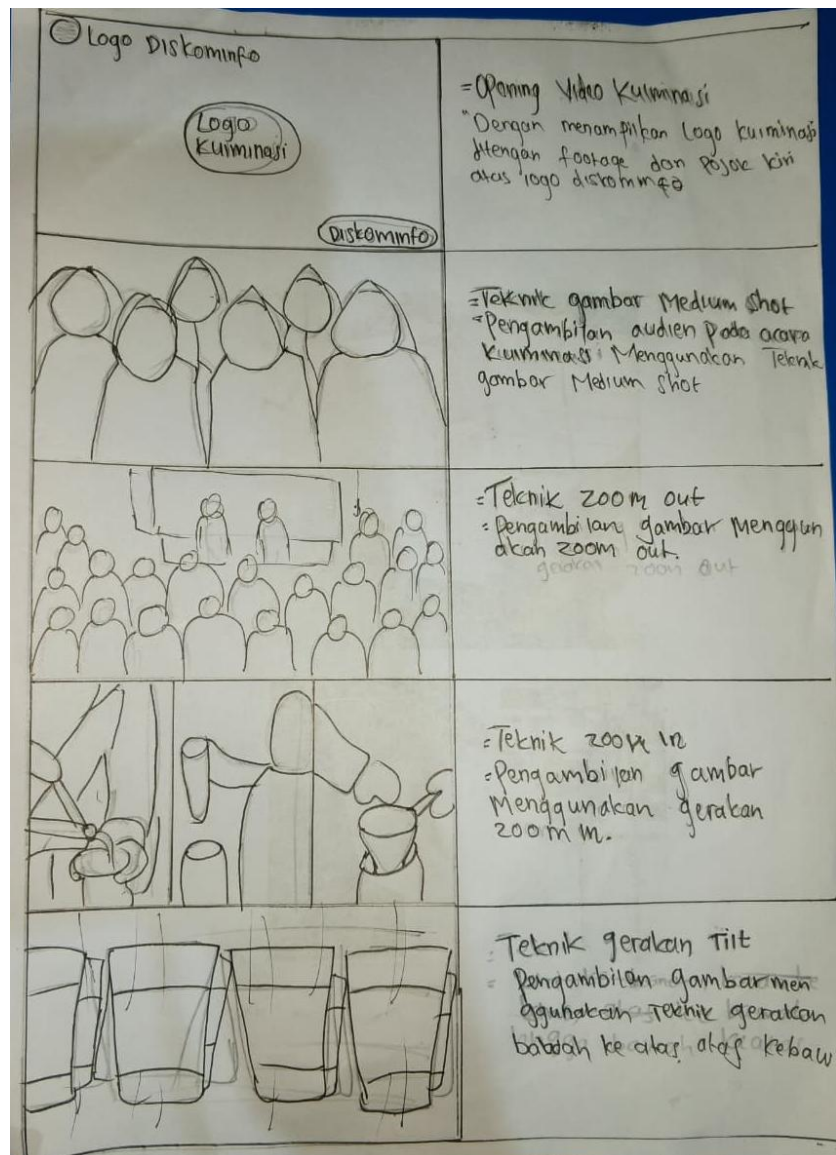 Logo Diskominfo
Logo
Kulminasi
Diskominfo
= Opening Video Kulminasi
"Dengan menampilkan Logo kulminasi
ditengah footage dan pojok kiri
atas logo diskominfo
= Teknik gambar Medium shot
= Pengambilan audien pada acara
Kulminasi Menggunakan Teknik
gambar Medium shot
= Teknik zoom out
= Pengambilan gambar Menggun
akan zoom out.
gerakan zoom out
= Teknik zoom in
= Pengambilan gambar
Menggunakan gerakan
zoom in.
= Teknik gerakan Tilt
= Pengambilan gambar men
ggunakan teknik gerakan
ke atas, atas kebaw